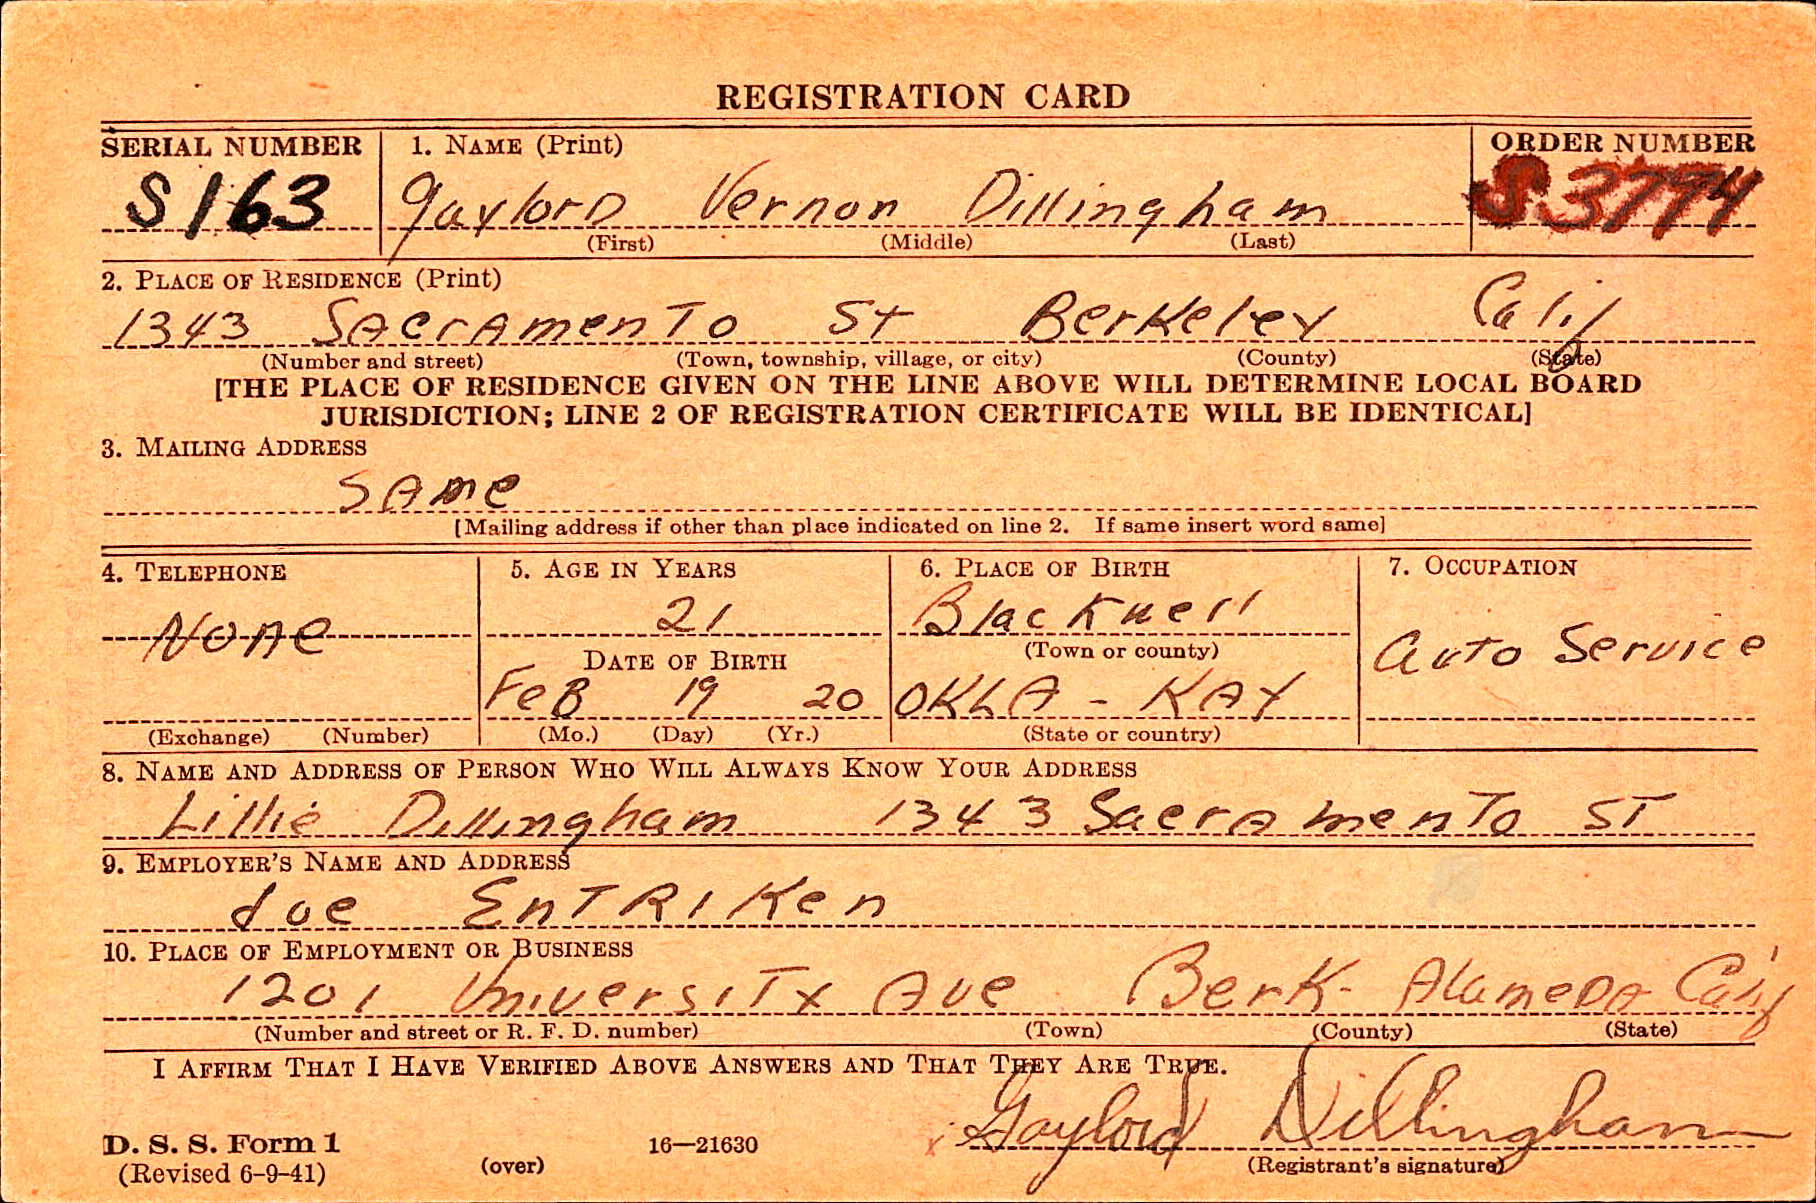 REGISTRATION CARD
SERIAL NUMBER 1. NAME (Print) ORDER NUMBER
S 163 Gaylord Vernon Dillingham S 3794
(First) (Middle) (Last)
2. PLACE OF RESIDENCE (Print)
1343 Sacramento St Berkeley Calif
(Number and street) (Town, township, village, or city) (County) (State)
[THE PLACE OF RESIDENCE GIVEN ON THE LINE ABOVE WILL DETERMINE LOCAL BOARD
JURISDICTION; LINE 2 OF REGISTRATION CERTIFICATE WILL BE IDENTICAL]
3. MAILING ADDRESS
Same
[Mailing address if other than place indicated on line 2. If same insert word same]
4. TELEPHONE 5. AGE IN YEARS 6. PLACE OF BIRTH 7. OCCUPATION
None 21 Blackwell Auto Service
DATE OF BIRTH (Town or county)
Feb 19 20 OKLA - KAY
(Exchange) (Number) (Mo.) (Day) (Yr.) (State or country)
8. NAME AND ADDRESS OF PERSON WHO WILL ALWAYS KNOW YOUR ADDRESS
Lillie Dillingham 1343 Sacramento ST
9. EMPLOYER'S NAME AND ADDRESS
Joe Entriken
10. PLACE OF EMPLOYMENT OR BUSINESS
1201 University Ave Berk- Alameda Calif
(Number and street or R. F. D. number) (Town) (County) (State)
I AFFIRM THAT I HAVE VERIFIED ABOVE ANSWERS AND THAT THEY ARE TRUE.
Gaylord Dillingham
D. S. S. Form 1 16—21630
(Revised 6-9-41) (over) (Registrant's signature)